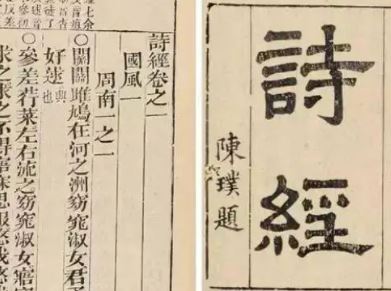 詩經
陳璞題
詩經卷之一
國風一
周南一之一
〇關關雎鳩在河之洲窈窕淑女君子
好逑興也
〇參差荇菜左右流之窈窕淑女寤寐
求之求之不得寤寐思服悠哉悠